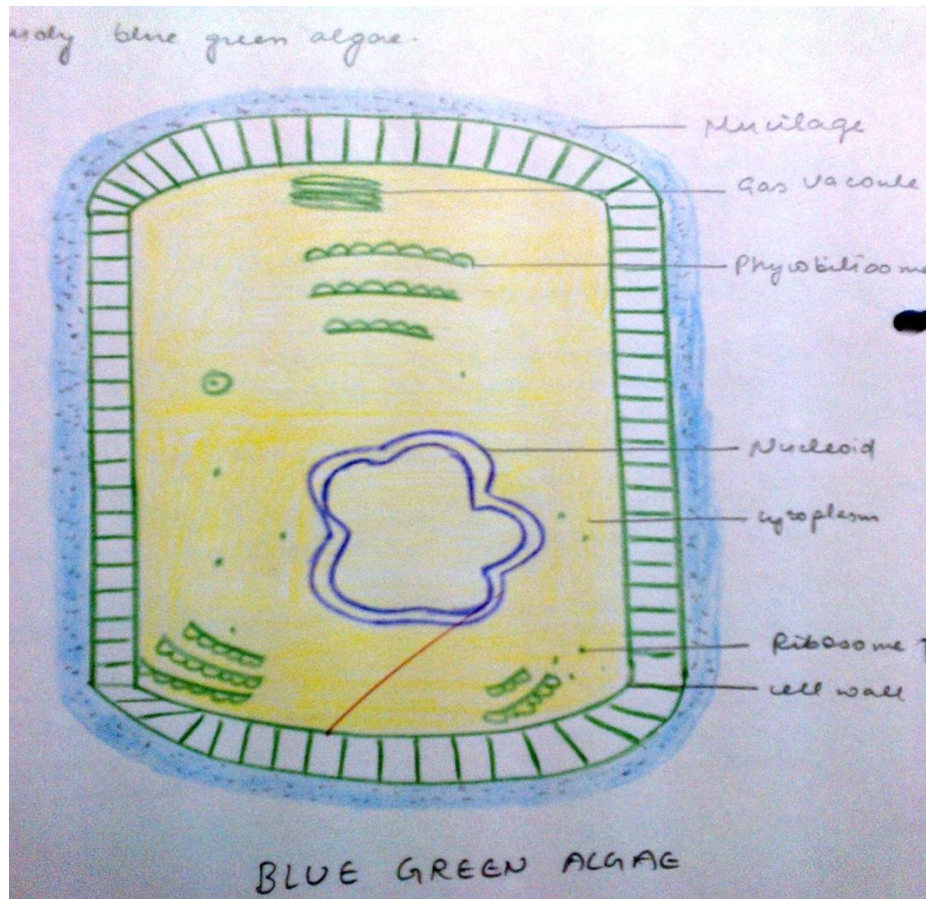 blue green algae.
Mucilage
Gas Vacoule
Phycobilisome
Nucleoid
cytoplasm
Ribosome
cell wall
BLUE GREEN ALGAE